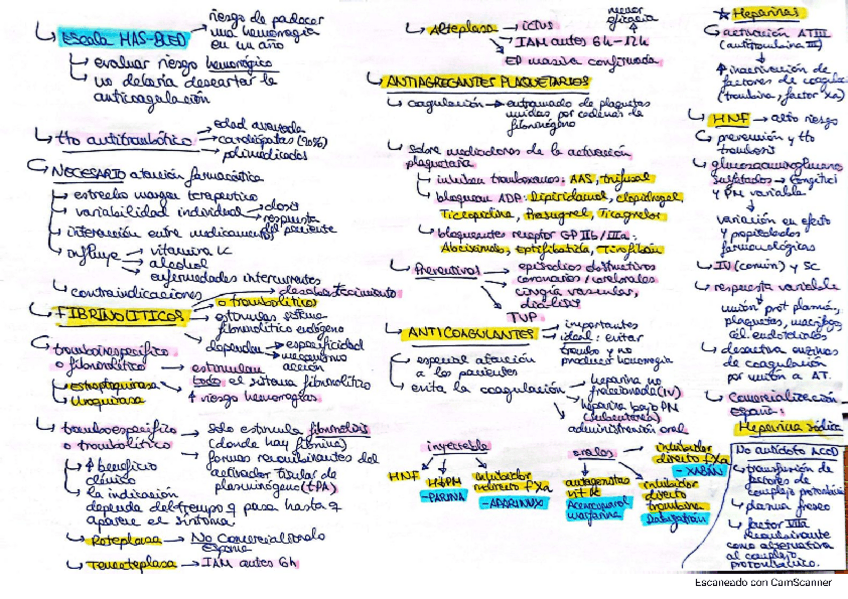 Escala HAS-BLED → riesgo de padecer
una hemorragia
en un año
↳ evaluar riesgo hemorrágico
↳ no debería descartar la
anticoagulación
↳ tto antitrombótico → edad avanzada
→ cardiópatas (90%)
→ polimedicados
NECESARIO atención farmacéutica
↳ estrecho margen terapéutico
↳ variabilidad individual → dosis
→ respuesta
del paciente
↳ interacción entre medicamentos
↳ influye → vitamina K
→ alcohol
→ enfermedades intercurrentes
↳ contraindicaciones → desabastecimiento
FIBRINOLÍTICOS → o trombolíticos
→ estimulan sistema
fibrinolítico endógeno
→ dependen → especificidad
→ mecanismo
acción
↳ tromboinespecífico
o fibrinolítico → estimulan
todo el sistema fibrinolítico
↳ estreptoquinasa
↳ Uroquinasa
↑ riesgo hemorragias
↳ tromboespecífico
o trombolítico → solo estimula fibrinolisis
(donde hay fibrina)
→ formas recombinantes del
activador tisular de
plasminógeno (tPA)
↳ ↑ beneficio
clínico
↳ la indicación
depende del tiempo q pasa hasta q
aparece el síntoma
↳ Reteplasa → No comercializado
España
↳ Tenecteplasa → IAM antes 6h
↳ Alteplasa → ictus
→ IAM antes 6h-12h → menor
eficacia
→ EP masiva confirmada
ANTIAGREGANTES PLAQUETARIOS
↳ coagulación → entramado de plaquetas
unidas por cadenas de
fibrinógeno
↳ sobre mediadores de la activación
plaquetaria
↳ inhiben tromboxanos: AAS, triflusal
↳ bloquean ADP: Dipiridamol, clopidogrel,
Ticlopidina, Prasugrel, Ticagrelor
↳ bloqueantes receptor GP IIb/IIIa:
Abciximab, eptifibatida, Tirofibán
↳ Preventivos → episodios obstructivos
coronarios/cerebrales
→ cirugía vascular,
diálisis
→ TVP
↳ ANTICOAGULANTES → importantes
→ ideal: evitar
trombo y no
producir hemorragia
↳ especial atención
a los pacientes
↳ evita la coagulación → heparina no
fraccionada (IV)
→ heparina bajo PM
(subcutánea)
→ administración oral
inyectable
HNF
HBPM
-PARINA
inhibidor
indirecto fXa
-APARINUX
orales
antagonistas
vit K
Acenocumarol
warfarina
inhibidor
directo
trombina
Dabigatrán
inhibidor
directo fXa
-XABÁN
★ Heparinas
↳ activación ATIII
(antitrombina III)
↓
↑ inactivación de
factores de coagula
(trombina, factor Xa)
↳ HNF → alto riesgo
↳ prevención y tto
trombosis
↳ glucosaminoglucano
sulfatados → longitud
y PM variable
↓
variación en efecto
y propiedades
farmacológicas
↳ IV (común) y SC
↳ respuesta variable
↓
unión prot plasma,
plaquetas, macrófagos,
cél. endoteliales
↳ desactiva enzimas
de coagulación
por unión a AT.
↳ Comercialización
España:
Heparina sódica
No antídoto ACOD
↳ transfusión de
factores de
complejo protrombínico
↳ plasma fresco
↳ factor VIIa
recombinante
como alternativa
al complejo
protrombínico.
Escaneado con CamScanner